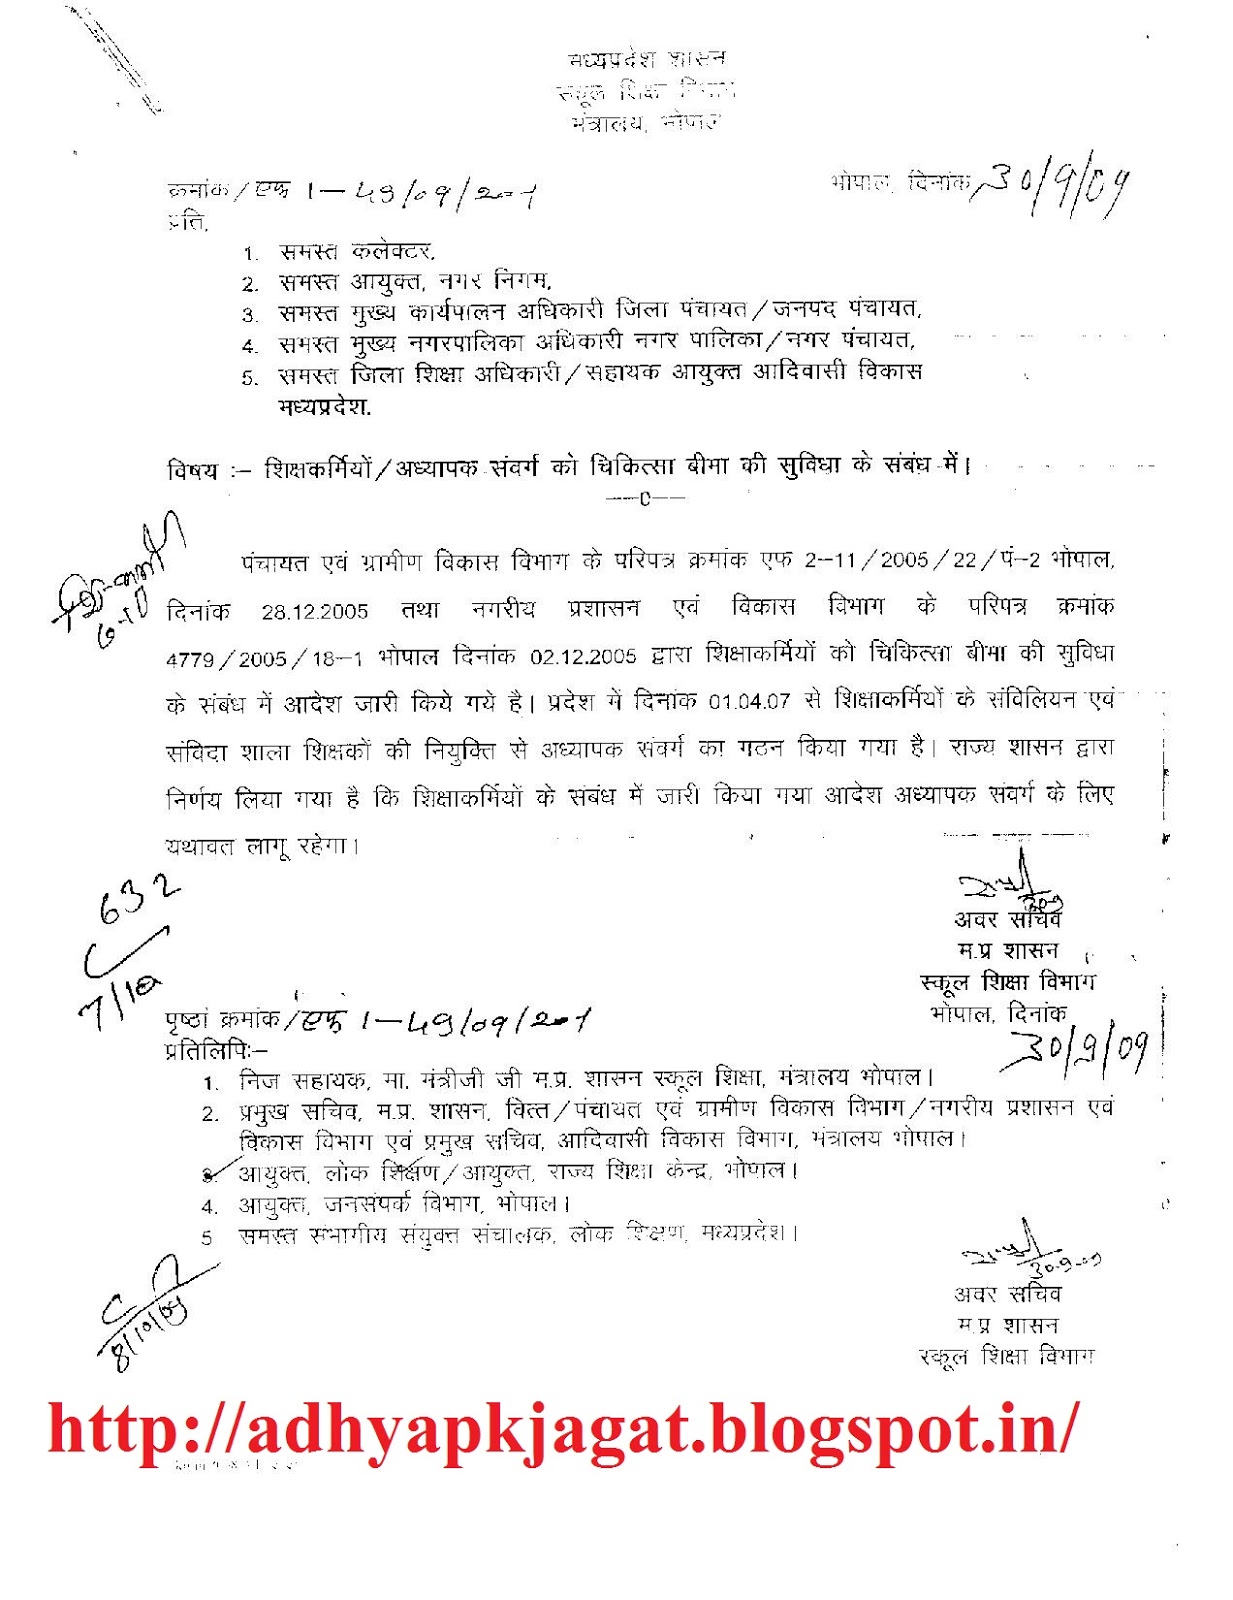 मध्यप्रदेश शासन
स्कूल शिक्षा विभाग
मंत्रालय, भोपाल
क्रमांक/एफ 1-49/09/20-1
भोपाल, दिनांक, 30/9/09
प्रति,
1. समस्त कलेक्टर,
2. समस्त आयुक्त, नगर निगम,
3. समस्त मुख्य कार्यपालन अधिकारी जिला पंचायत/जनपद पंचायत,
4. समस्त मुख्य नगरपालिका अधिकारी नगर पालिका/नगर पंचायत,
5. समस्त जिला शिक्षा अधिकारी/सहायक आयुक्त आदिवासी विकास
मध्यप्रदेश.
विषय :- शिक्षकर्मियों/अध्यापक संवर्ग को चिकित्सा बीमा की सुविधा के संबंध में।
---0---
पंचायत एवं ग्रामीण विकास विभाग के परिपत्र क्रमांक एफ 2-11/2005/22/पं-2 भोपाल,
दिनांक 28.12.2005 तथा नगरीय प्रशासन एवं विकास विभाग के परिपत्र क्रमांक
4779/2005/18-1 भोपाल दिनांक 02.12.2005 द्वारा शिक्षाकर्मियों को चिकित्सा बीमा की सुविधा
के संबंध में आदेश जारी किये गये है। प्रदेश में दिनांक 01.04.07 से शिक्षाकर्मियों के संविलियन एवं
संविदा शाला शिक्षकों की नियुक्ति से अध्यापक संवर्ग का गठन किया गया है। राज्य शासन द्वारा
निर्णय लिया गया है कि शिक्षाकर्मियों के संबंध में जारी किया गया आदेश अध्यापक संवर्ग के लिए
यथावत लागू रहेगा।
632
7/10
30-9
अवर सचिव
म.प्र शासन
स्कूल शिक्षा विभाग
भोपाल, दिनांक
30/9/09
पृष्ठां क्रमांक/एफ 1-49/09/20-1
प्रतिलिपि:-
1. निज सहायक, मा. मंत्रीजी जी म.प्र. शासन स्कूल शिक्षा, मंत्रालय भोपाल।
2. प्रमुख सचिव, म.प्र. शासन, वित्त/पंचायत एवं ग्रामीण विकास विभाग/नगरीय प्रशासन एवं
विकास विभाग एवं प्रमुख सचिव, आदिवासी विकास विभाग, मंत्रालय भोपाल।
3. आयुक्त, लोक शिक्षण/आयुक्त, राज्य शिक्षा केन्द्र, भोपाल।
4. आयुक्त, जनसंपर्क विभाग, भोपाल।
5 समस्त संभागीय संयुक्त संचालक, लोक शिक्षण, मध्यप्रदेश।
30-9-09
अवर सचिव
म.प्र शासन
स्कूल शिक्षा विभाग
8/10/09
http://adhyapkjagat.blogspot.in/